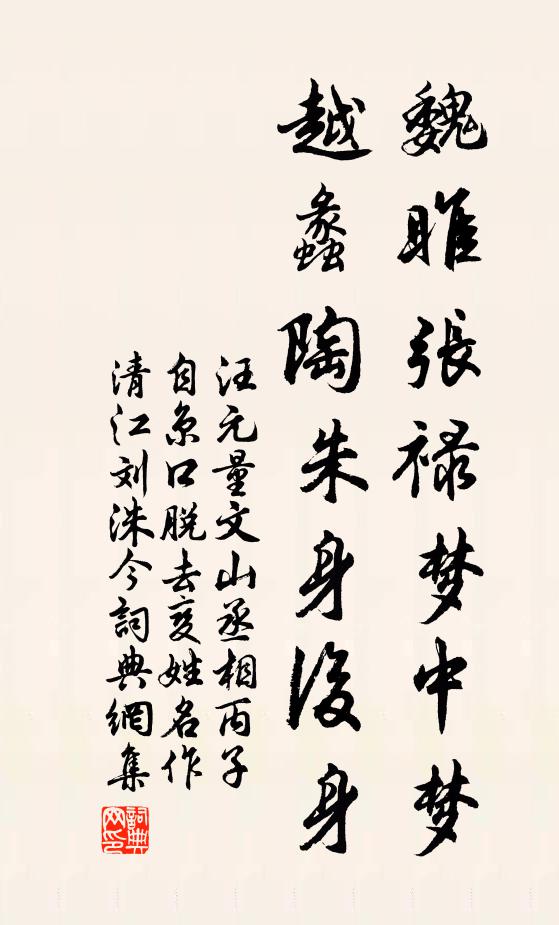 魏睢張禄梦中梦
越蠡陶朱身後身
汪元量文山丞相丙子
自京口脱去变姓名作
清江刘洙今詞典網集
詞典网印